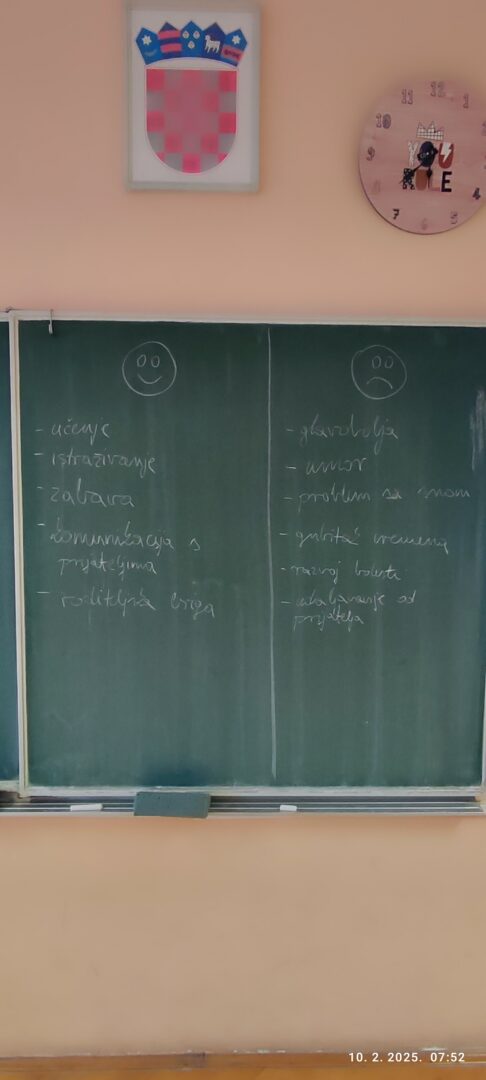 12
11
1
10
9
8
4
7
5
6
YOU
RULE
- učenje
- istraživanje
- zabava
- komunikacija s
prijateljima
- roditeljska briga
- glavobolja
- umor
- problem sa snom
- gubitak vremena
- razvoj bolesti
- od
prijatelja
10. 2. 2025. 07:52